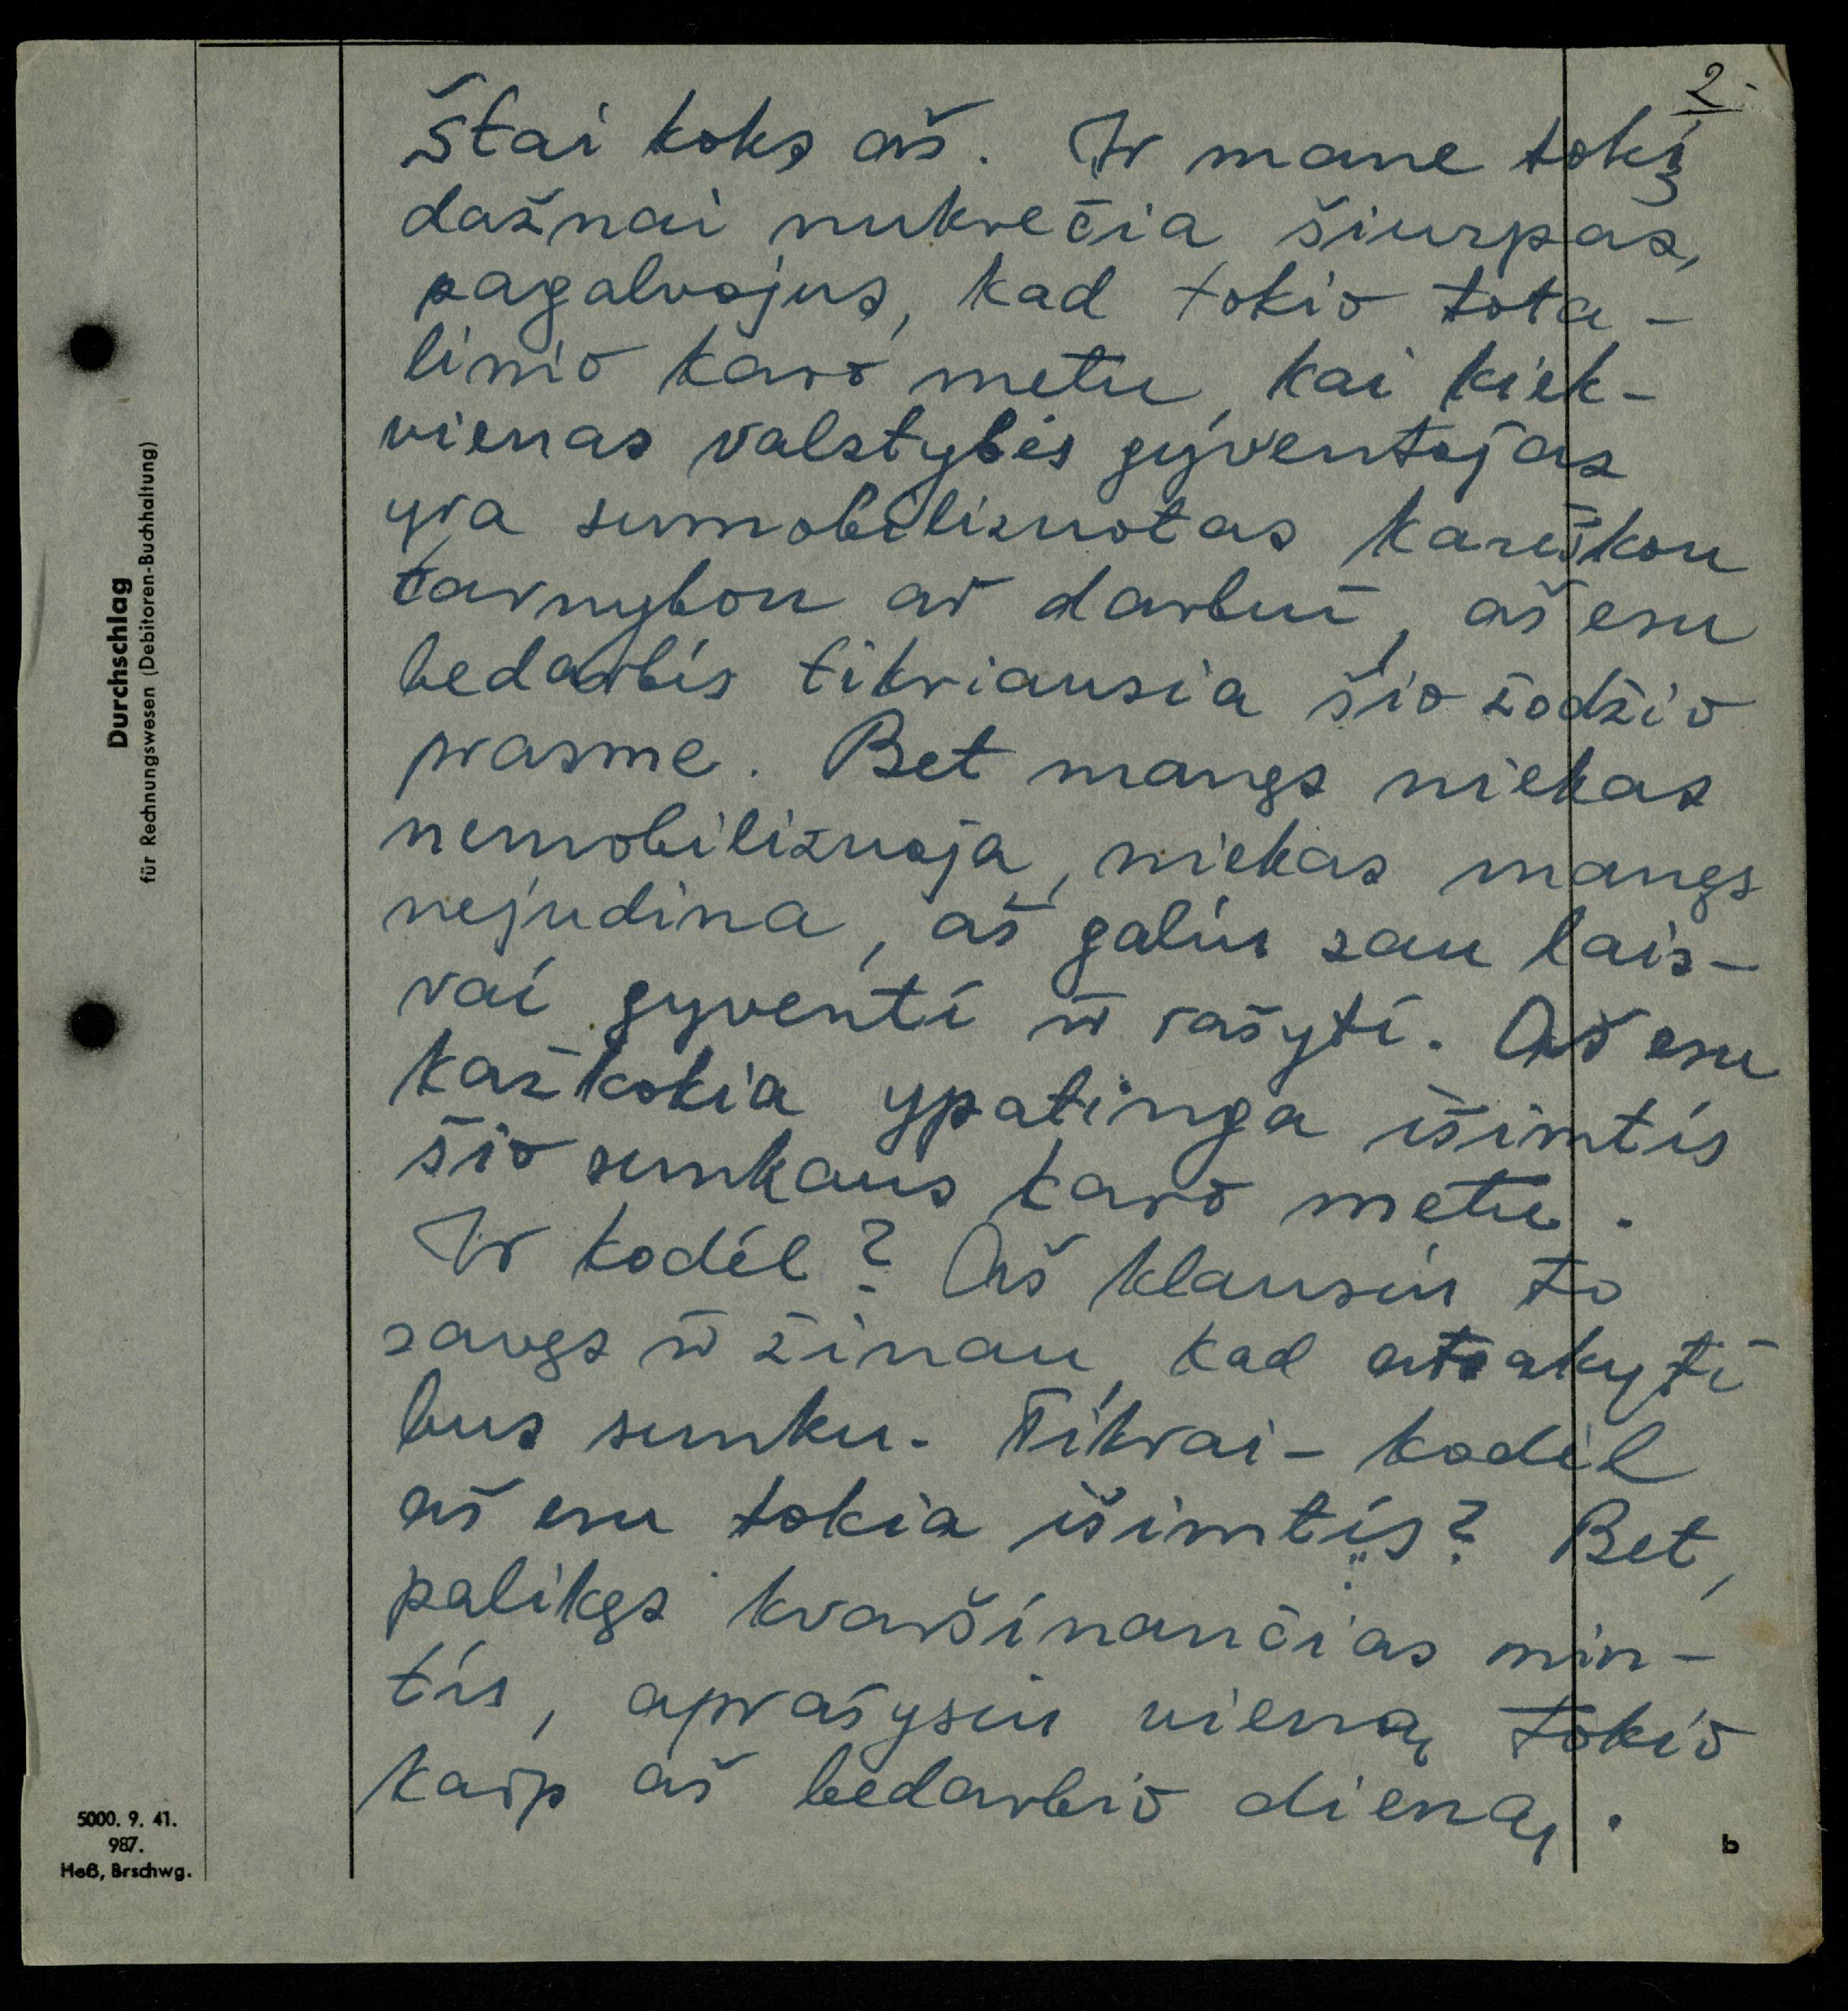 2
Štai koks aš. Ir mane tokį
dažnai nukrečia šiurpas,
pagalvojus, kad tokio tota-
linio karo metu, kai kiek-
vienas valstybės gyventojas
yra sumobilizuotas kariškon
tarnybon ar darbui, aš esu
bedarbis tikriausia šio žodžio
prasme. Bet manęs niekas
nemobilizuoja, niekas manęs
nejudina, aš galiu sau lais-
vai gyventi ir rašyti. Aš esu
kažkokia ypatinga išimtis
šio sunkaus karo metu.
Ir kodėl? Aš klausiu to
savęs ir žinau, kad atsakyti
bus sunku. Tikrai - kodėl
aš esu tokia išimtis? Bet,
palikęs kvaršinančias min-
tis, aprašysiu vieną tokio
kaip aš bedarbio dieną.
Durchschlag
für Rechnungswesen (Debitoren-Buchhaltung)
5000. 9. 41.
987.
Heß, Brschwg.
b